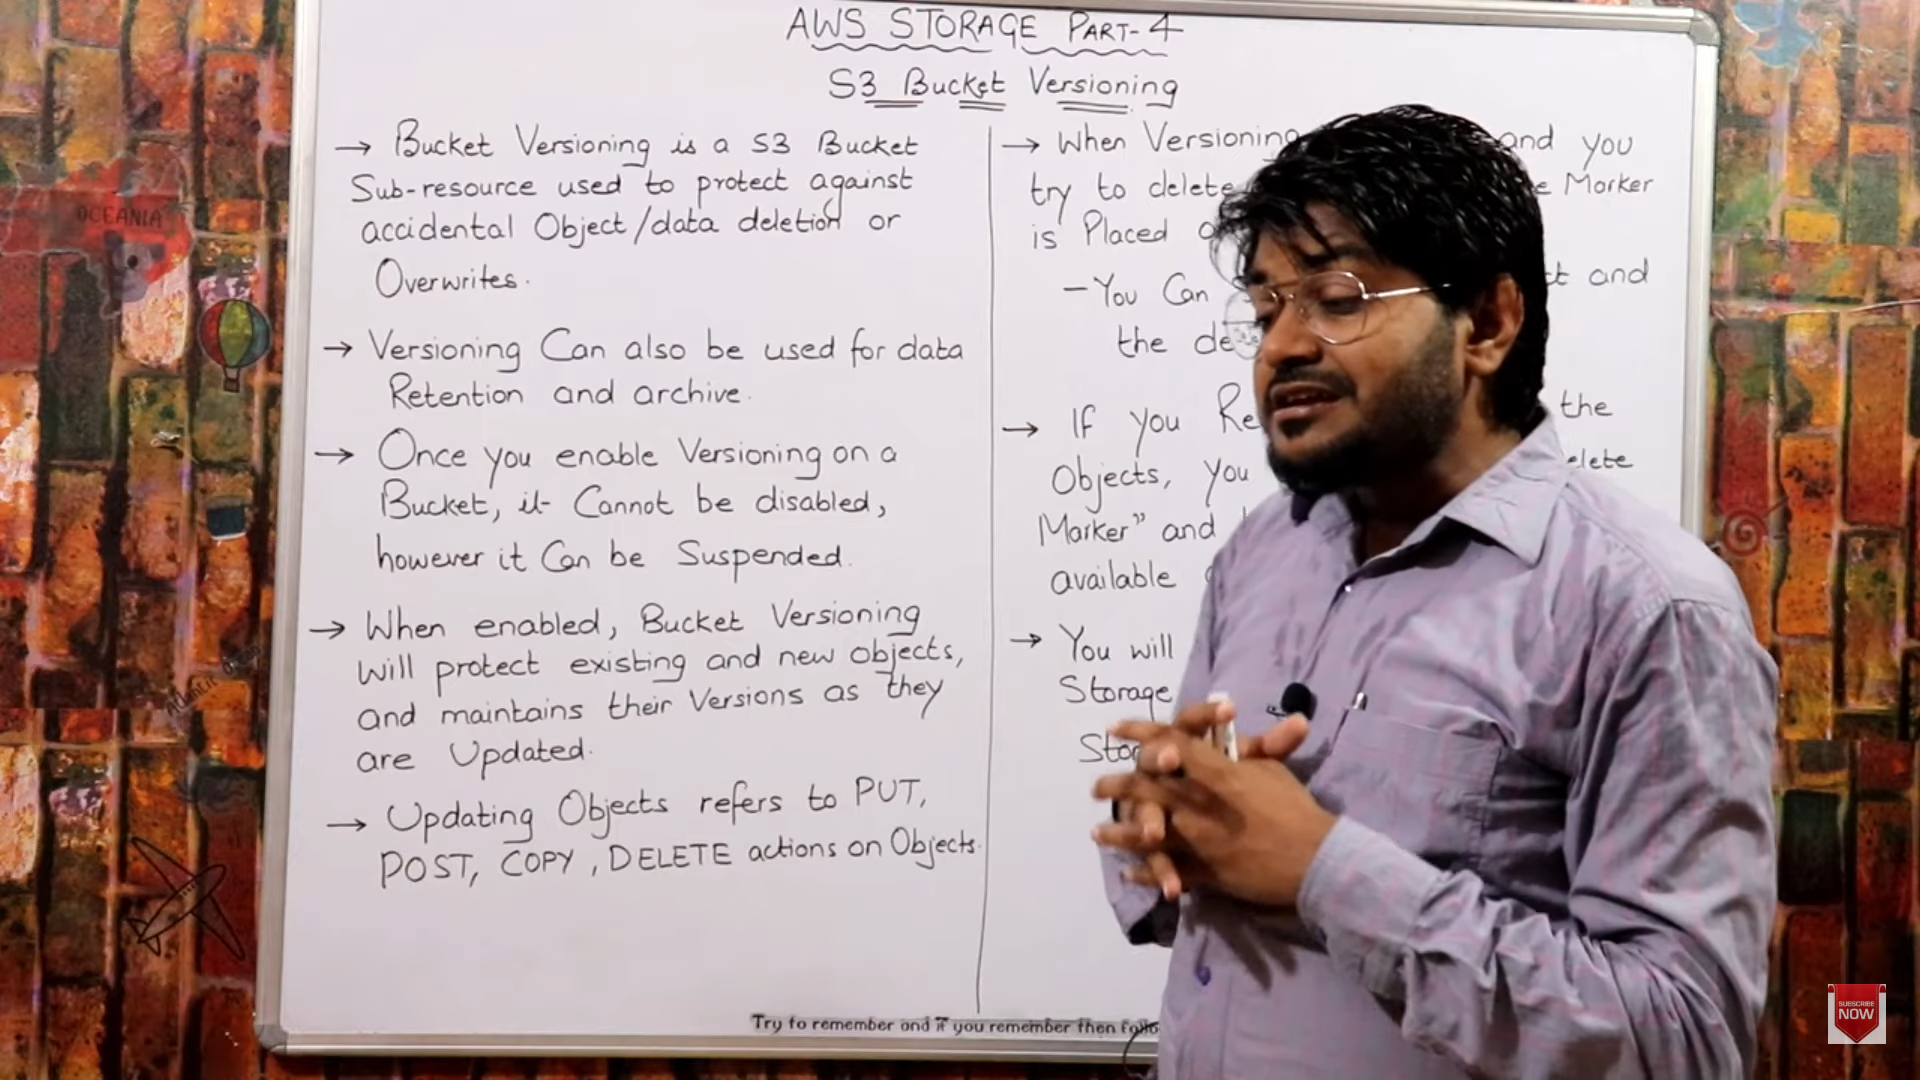 AWS STORAGE PART-4
S3 Bucket Versioning
→ Bucket Versioning is a S3 Bucket
Sub-resource used to protect against
accidental Object/data deletion or
Overwrites.
→ Versioning Can also be used for data
Retention and archive.
→ Once you enable Versioning on a
Bucket, it Cannot be disabled,
however it Can be Suspended.
→ When enabled, Bucket Versioning
Will protect existing and new objects,
and maintains their Versions as they
are Updated.
→ Updating Objects refers to PUT,
POST, COPY, DELETE actions on Objects.
→ When Versioning and you
try to delete Marker
is Placed
- You Can and
the
→ If you the
Objects, you
Marker" and
available
→ You will
Storage
Try to remember and if you remember then
OCEANIA
SUBSCRIBE
NOW